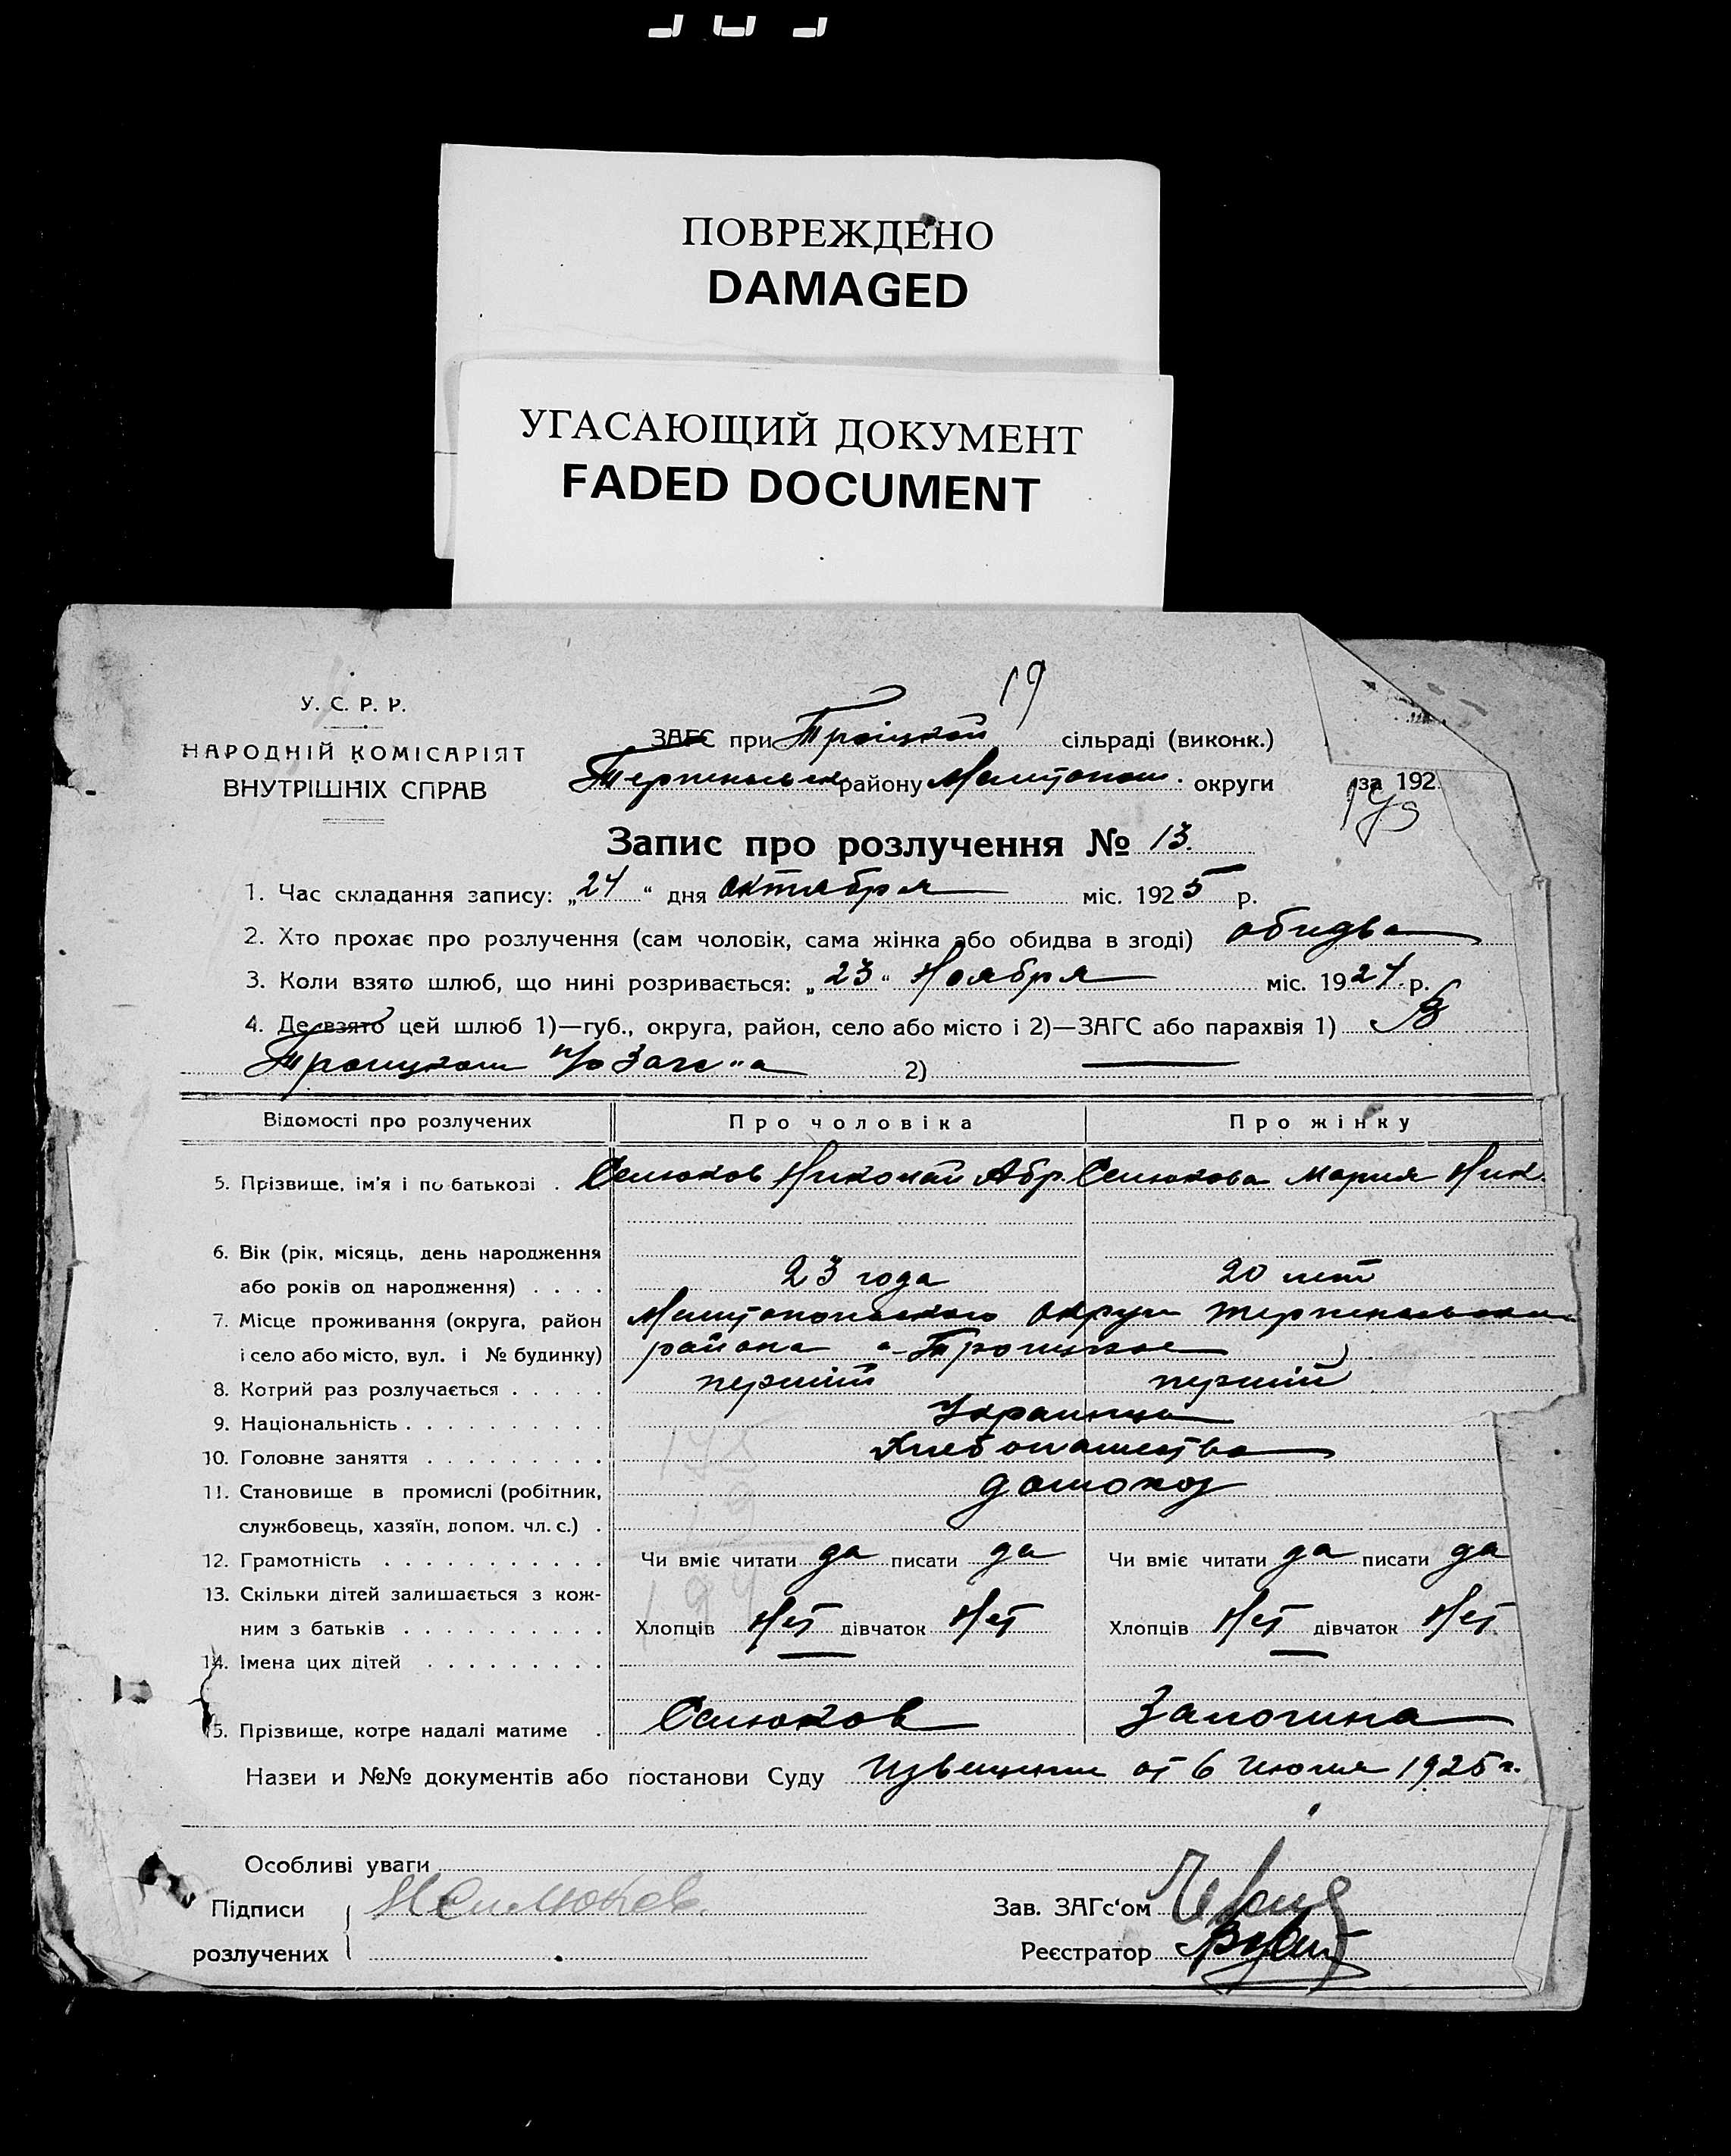 ПОВРЕЖДЕНО
DAMAGED
УГАСАЮЩИЙ ДОКУМЕНТ
FADED DOCUMENT
19
У. С. Р. Р.
НАРОДНІЙ КОМІСАРІЯТ
ВНУТРІШНІХ СПРАВ
ЗАГС при Троіцкой сільраді (виконк.)
району округи за 192
Запис про розлучення № 13.
1. Час складання запису: „24“ дня октября міс. 1925 р.
2. Хто прохає про розлучення (сам чоловік, сама жінка або обидва в згоді) обидва
3. Коли взято шлюб, що нині розривається: „23“ Ноября міс. 1924 р.
4. Де взято цей шлюб 1)—губ., округа, район, село або місто і 2)—ЗАГС або парахвія 1) В
Троицком 2) —
Відомості про розлучених Про чоловіка Про жінку
5. Прізвище, ім'я і по батькові . Селюков Николай Абр. Селюкова Мария Ник.
6. Вік (рік, місяць, день народження
або років од народження) . . . . 23 года 20 лет
7. Місце проживання (округа, район Мелитопольского округи
і село або місто, вул. і № будинку) района Троицкое
8. Котрий раз розлучається . . . . . перший перший
9. Національність . . . . . . . . . Украинцы
10. Головне заняття . . . . . . . . . Хлебопашества
11. Становище в промислі (робітник,
службовець, хазяїн, допом. чл. с.) .
12. Грамотність . . . . . . . . . . . Чи вміє читати да писати да Чи вміє читати да писати да
13. Скільки дітей залишається з кож-
ним з батьків . . . . . . . . . . Хлопців Нет дівчаток Нет Хлопців Нет дівчаток Нет
14. Імена цих дітей . . . . . . . . . — —
15. Прізвище, котре надалі матиме . Селюков Замогина
Назви и №№ документів або постанови Суду Извещение от 6 Июля 1925 г.
Особливі уваги
Підписи Н Силюков.
розлучених
Зав. ЗАГс'ом
Реєстратор